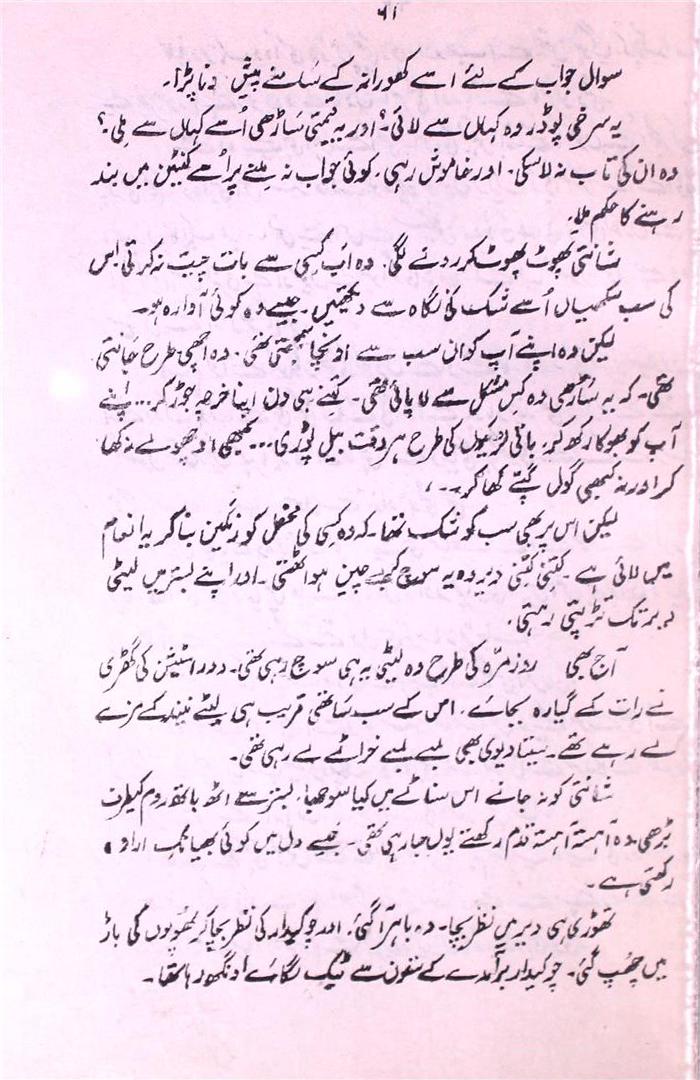 ۶۱
سوال جواب کے لئے اسے کھورانہ کے سامنے پیش ہونا پڑا۔
یہ سرخی پوڈر وہ کہاں سے لائی؟ اور یہ قیمتی ساڑھی اُسے کہاں سے ملی؟
وہ ان کی تاب نہ لاسکی۔ اور خاموش رہی۔ کوئی جواب نہ ملنے پر اُسے کنٹین میں بند
رہنے کا حکم ملا۔
شانتی پھوٹ پھوٹ کر رونے لگی۔ وہ اب کسی سے بات چیت نہ کرتی اس
کی سب سکھیاں اُسے شک کی نگاہ سے دیکھتیں۔ جیسے وہ کوئی آوارہ ہو۔
لیکن وہ اپنے آپ کو ان سب سے اونچا سمجھتی تھی۔ وہ اچھی طرح جانتی
تھی۔ کہ یہ ساڑھی وہ کس مشکل سے لا پائی تھی۔ کتنے ہی دن اپنا خرچہ جوڑ کر... اپنے
آپ کو بھوکا رکھ کر۔ باقی لڑکیوں کی طرح ہر وقت بیل پوڑی... کبھی چھولے نہ کھا
کر اور نہ کبھی گول گپے کھا کر۔۔،
لیکن اس پر بھی سب کو شک تھا۔ کہ وہ کسی کی محفل کو رنگین بنا کر یہ انعام
میں لائی ہے۔ کتنی کتنی دیر وہ یہ سوچ کر بے چین ہو اٹھتی۔ اور اپنے بستر میں لیٹی
دیر تک تڑپتی رہتی۔
آج بھی روزمرّہ کی طرح وہ لیٹی یہ ہی سوچ رہی تھی۔ دور اسٹیشن کی گھڑی
نے رات کے گیارہ بجائے۔ اس کے سب ساتھی قریب ہی لیٹے نیند کے مزے
لے رہے تھے۔ سیتا دیوی بھی لمبے لمبے خراٹے لے رہی تھی۔
شانتی کو نہ جانے اس سناٹے میں کیا سوجھا۔ بستر سے اٹھ باتھ روم کیطرف
بڑھی۔ وہ آہستہ آہستہ قدم رکھتے یوں جا رہی تھی۔ جیسے دل میں کوئی بھیانک ارادہ
رکھتی ہے۔
تھوڑی ہی دیر میں نظر بچا۔ وہ باہر آ گئی۔ اور چوکیدار کی نظر بچا کر پھولوں کی باڑ
میں چھپ گئی۔ چوکیدار برآمدے کے ستون سے ٹیک لگائے اونگھ رہا تھا۔